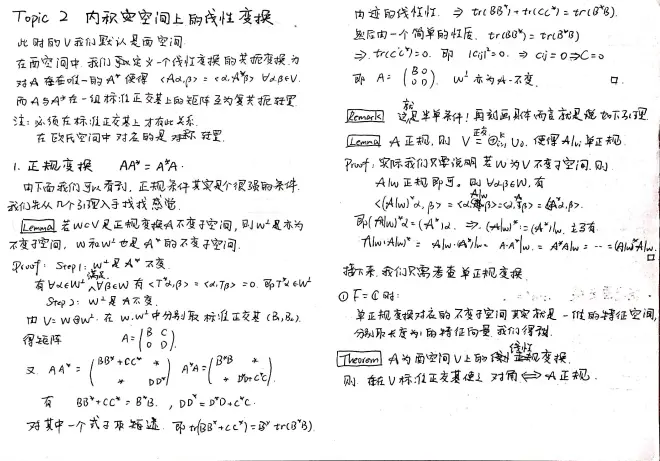 Topic 2 内积空间上的线性变换
此时的V我们默认是酉空间.
在酉空间中, 我们定义一个线性变换的共轭变换为
对A存在唯一的A* 使得 <Aα,β> = <α,A*β> ∀α,β∈V.
而A与A*在一组标准正交基上的矩阵互为复共轭转置
注: 必须在标准正交基上才有此关系.
在欧氏空间中对应的是 转置.
1. 正规变换 AA* = A*A.
由下面我们可以看到, 正规条件其实是个很强的条件.
我们先从几个引理入手找找感觉.
Lemma 若W⊂V是正规变换A不变子空间, 则W⊥亦为
不变子空间, W和W⊥也是A*的不变子空间.
Proof: Step1: W⊥是A*不变.
有∀α∈W⊥ 满足∀β∈W 有 <T*α,β> = <α,Tβ> = 0. 即T*α∈W⊥
Step 2: W⊥是A不变.
由V=W⊕W⊥. 在W, W⊥中分别取标准正交基 (B₁,B₂).
得矩阵 A = (B C
0 D).
又 AA* = (BB*+CC* *
* DD*) A*A = (B*B *
* D*D+C*C).
有 BB*+CC* = B*B. , DD* = D*D+C*C.
对其中一个式子取矩迹. 即 tr(BB*+CC*) = tr(B*B).
由迹的线性性. ⇒ tr(BB*)+tr(CC*) = tr(B*B).
然后由一个简单的性质. tr(BB*) = tr(B*B)
⇒ tr(C*C)=0. 即 |cij|²=0 ⇒ cij=0 ⇒ C=0
即 A = (B 0
0 D). W⊥亦为A-不变. □.
Remark 这就是半单条件! 再刻画具体而言就是说如下引理.
Lemma A正规, 则 V = ⊕ U₀, 使得A|u单正规.
Proof: 实际我们只要说明 若W为V不变子空间. 则
A|w正规即可。则∀α,β∈W, 有
<(A|w)*α,β> = <α,A|wβ> = <α,Aβ> = <A*α,β>.
即(A|w)*α = (A*)α. ⇒ (A|w)* = (A*)|w. 立有.
A|w·(A|w)* = A|w·(A*)|w = A·A*|w = A*A|w = ... = (A|w)*A|w.
□
接下来, 我们只需考查单正规变换.
① F=ℂ时:
单正规变换对应的不变子空间其实就是一维的特征空间,
分别取长度为1的特征向量. 我们得到.
Theorem A为酉空间V上的线性变换.
则 存在V标准正交基使 对角 ⇔ A正规.